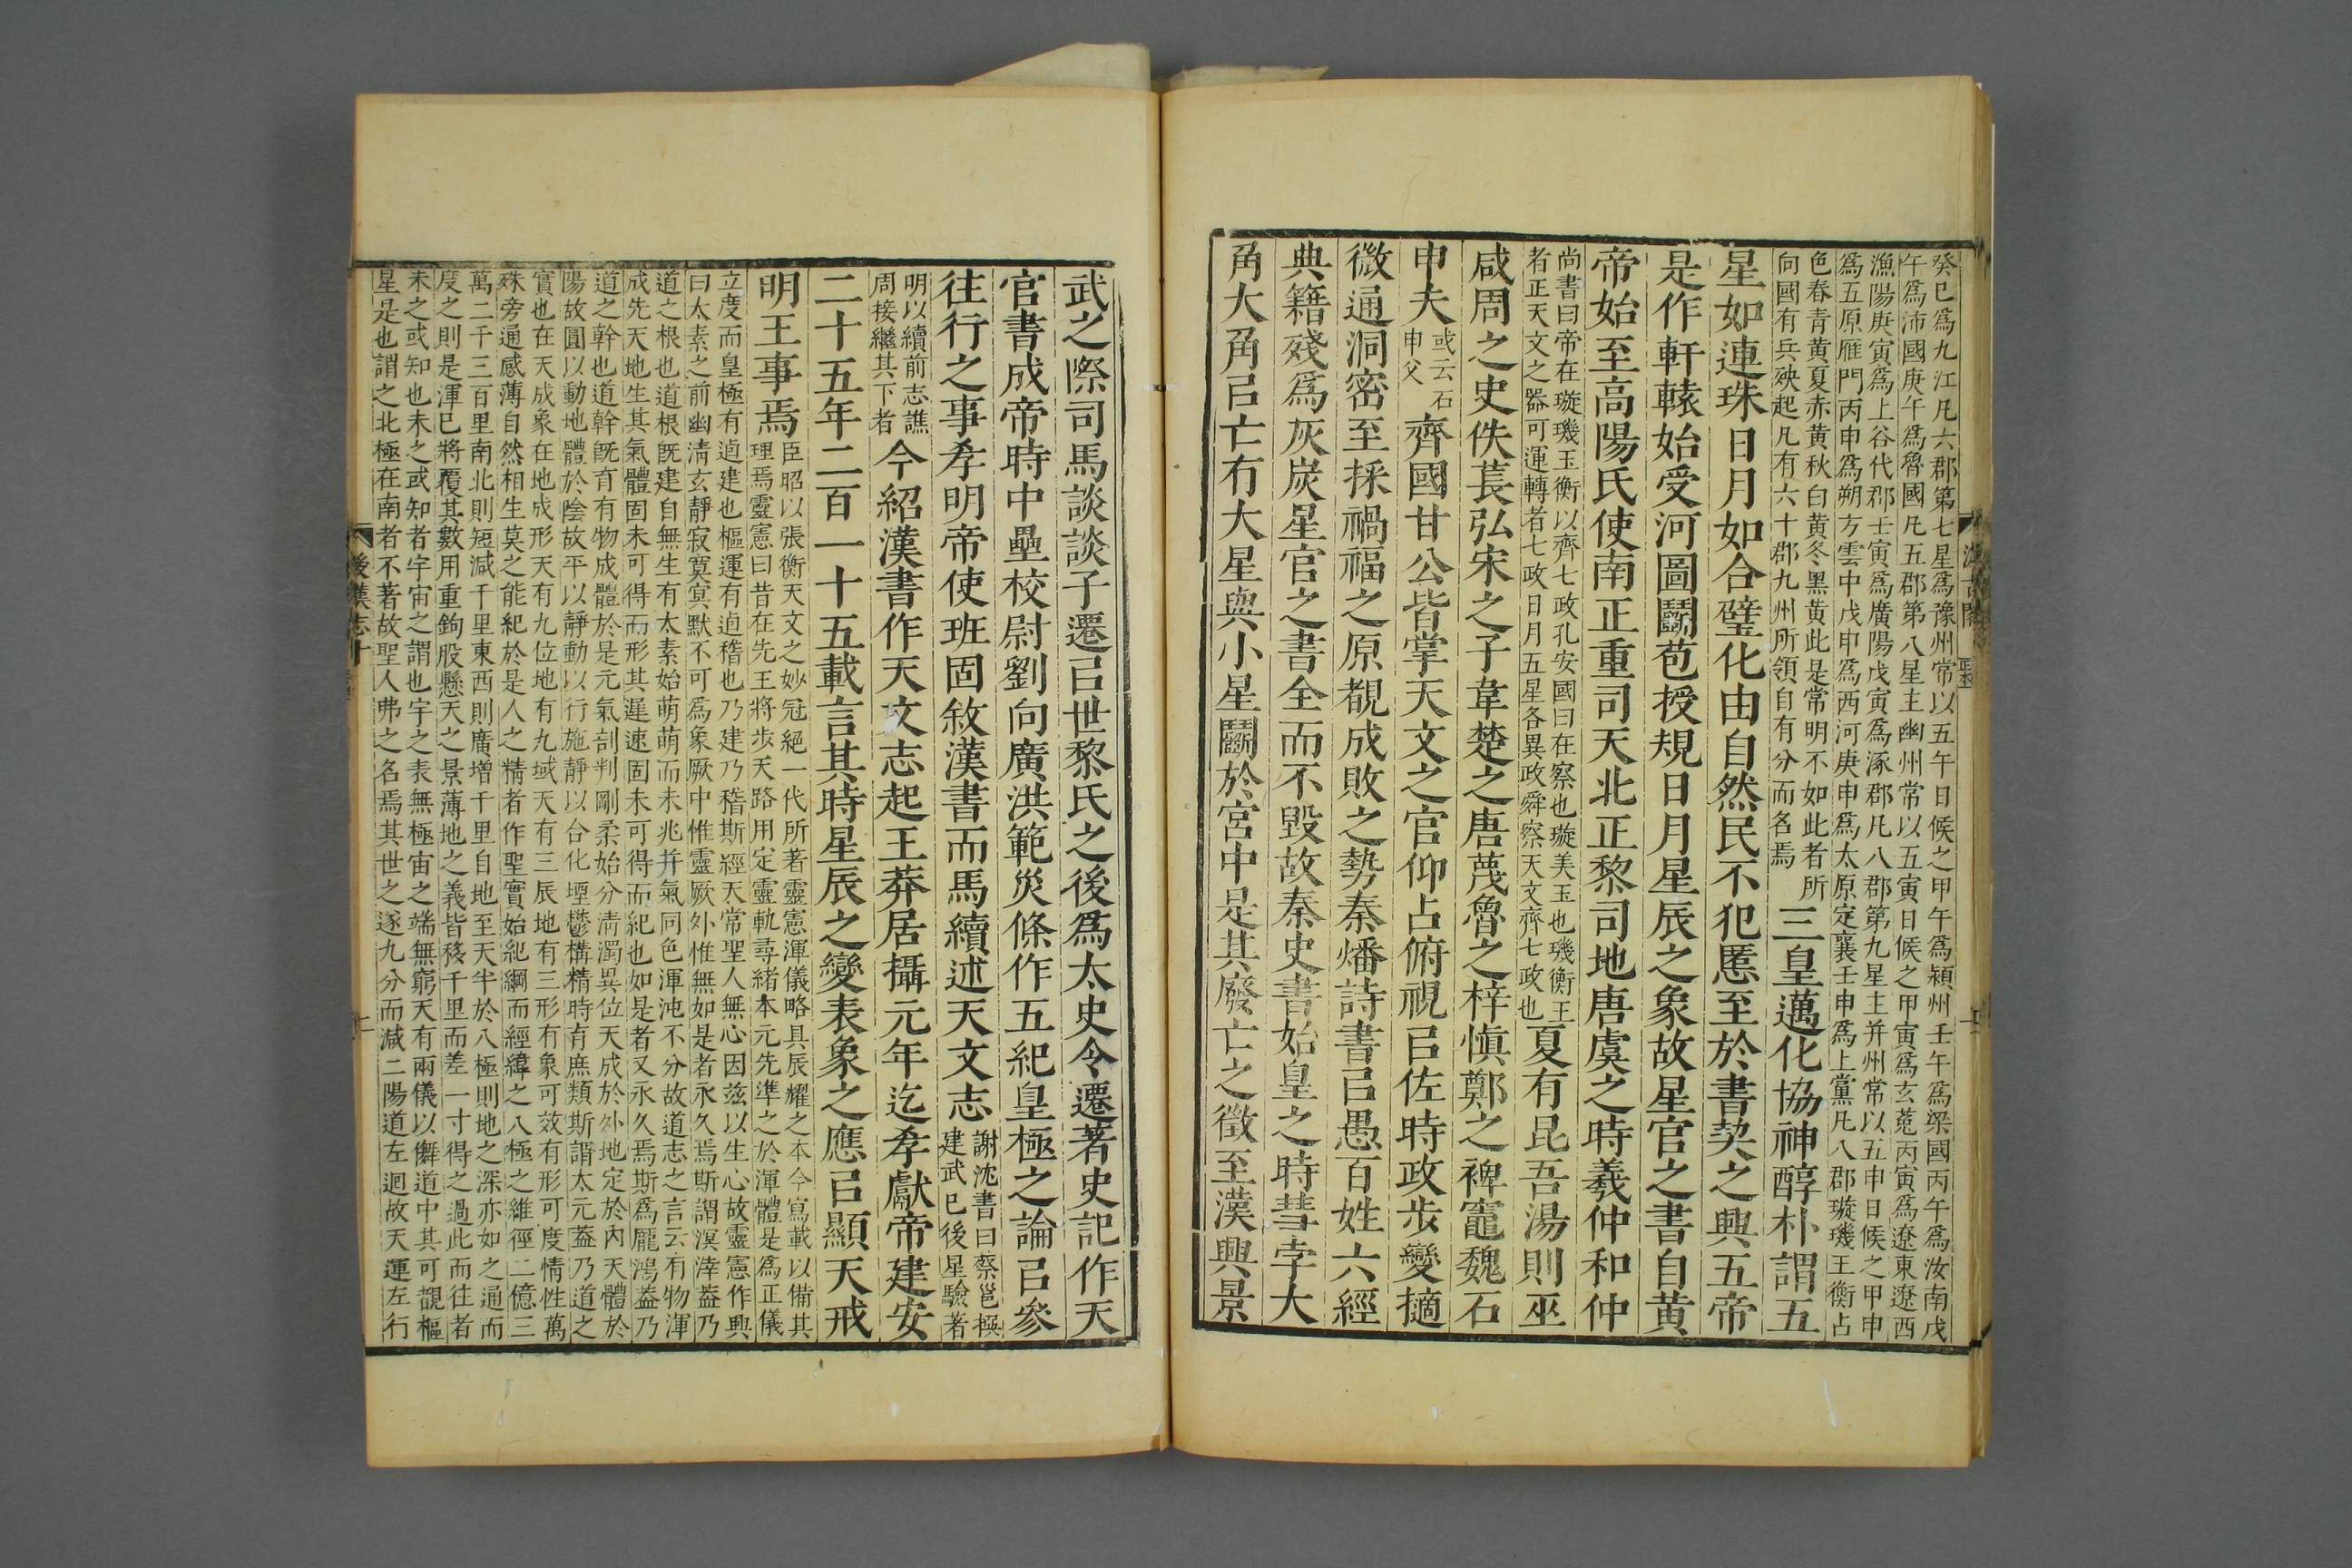 癸巳爲九江凡六郡第七星爲豫州常以五午日候之甲午爲潁州壬午爲梁國丙午爲汝南戊
午爲沛國庚午爲魯國凡五郡第八星主幽州常以五寅日候之甲寅爲玄菟丙寅爲遼東遼西
漁陽庚寅爲上谷代郡壬寅爲廣陽戊寅爲涿郡凡八郡第九星主并州常以五申日候之甲申
爲五原雁門丙申爲朔方雲中戊申爲西河庚申爲太原定襄壬申爲上黨凡八郡璇璣玉衡占
色春青黄夏赤黄秋白黄冬黑黄此是常明不如此者所
向國有兵殃起凡有六十郡九州所領自有分而名焉
三皇邁化協神醇朴謂五
星如連珠日月如合璧化由自然民不犯慝至於書契之興五帝
是作軒轅始受河圖鬭苞授規日月星辰之象故星官之書自黄
帝始至高陽氏使南正重司天北正黎司地唐虞之時羲仲和仲
尚書曰帝在璇璣玉衡以齊七政孔安國曰在察也璇美玉也璣衡王
者正天文之器可運轉者七政日月五星各異政舜察天文齊七政也
夏有昆吾湯則巫
咸周之史佚萇弘宋之子韋楚之唐蔑魯之梓慎鄭之裨竈魏石
申夫
或云石
申父
齊國甘公皆掌天文之官仰占俯視㠯佐時政步變擿
微通洞密至採禍福之原覩成敗之勢秦燔詩書㠯愚百姓六經
典籍殘爲灰炭星官之書全而不毁故秦史書始皇之時彗孛大
角大角㠯亡有大星與小星鬭於宫中是其廢亡之徵至漢興景
武之際司馬談談子遷㠯世黎氏之後爲太史令遷著史記作天
官書成帝時中壘校尉劉向廣洪範災條作五紀皇極之論㠯參
往行之事孝明帝使班固敘漢書而馬續述天文志
謝沈書曰蔡邕撰
建武已後星驗著
明以續前志譙
周接繼其下者
今紹漢書作天文志起王莽居攝元年迄孝獻帝建安
二十五年二百一十五載言其時星辰之變表象之應㠯顯天戒
明王事焉
臣昭以張衡天文之妙冠絶一代所著靈憲渾儀略具辰耀之本今寫載以備其
理焉靈憲曰昔在先王將步天路用定靈軌尋緒本元先準之於渾體是爲正儀
立度而皇極有逌建也樞運有逌稽也乃建乃稽斯經天常聖人無心因兹以生心故靈憲作興
曰太素之前幽淸玄靜寂寞冥默不可爲象厥中惟靈厥外惟無如是者永久焉斯謂溟涬蓋乃
道之根也道根旣建自無生有太素始萌萌而未兆并氣同色渾沌不分故道志之言云有物渾
成先天地生其氣體固未可得而形其遲速固未可得而紀也如是者又永久焉斯爲龎鴻蓋乃
道之幹也道幹旣育有物成體於是元氣剖判剛柔始分淸濁異位天成於外地定於內天體於
陽故圓以動地體於陰故平以靜動以行施靜以合化堙鬱構精時育庶類斯謂太元蓋乃道之
實也在天成象在地成形天有九位地有九域天有三辰地有三形有象可效有形可度情性萬
殊旁通感薄自然相生莫之能紀於是人之精者作聖實始紀綱而經緯之八極之維徑二億三
萬二千三百里南北則短減千里東西則廣增千里自地至天半於八極則地之深亦如之通而
度之則是渾已將覆其數用重鉤股懸天之景薄地之義皆移千里而差一寸得之過此而往者
未之或知也未之或知者宇宙之謂也宇之表無極宙之端無窮天有兩儀以儛道中其可覩樞
星是也謂之北極在南者不著故聖人弗之名焉其世之遂九分而減二陽道左迴故天運左行
後漢志十